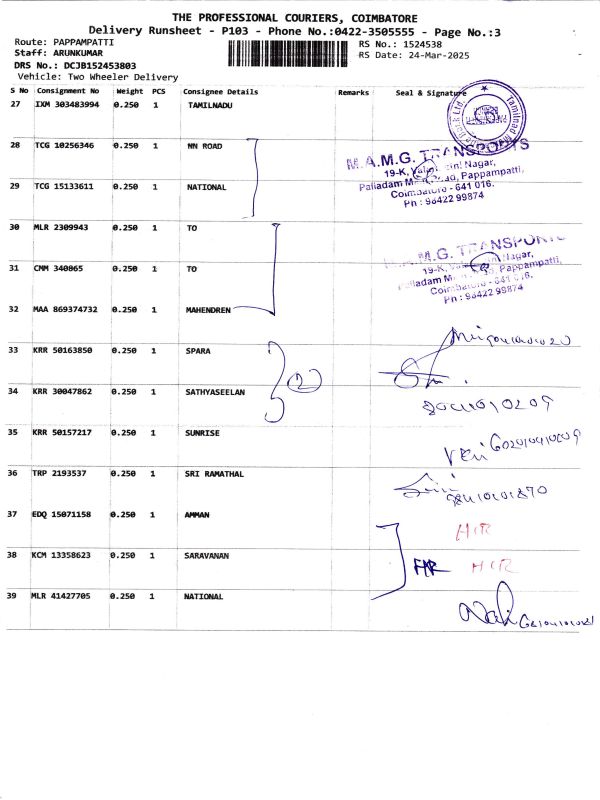 THE PROFESSIONAL COURIERS, COIMBATORE
Delivery Runsheet - P103 - Phone No.:0422-3505555 - Page No.:3
Route: PAPPAMPATTI RS No.: 1524538
Staff: ARUNKUMAR RS Date: 24-Mar-2025
DRS No.: DCJB152453803
Vehicle: Two Wheeler Delivery
S No Consignment No Weight PCS Consignee Details Remarks Seal & Signature
27 IXM 303483994 0.250 1 TAMILNADU
28 TCG 10256346 0.250 1 NN ROAD
M.A.M.G. TRANSPORTS
19-K, Nagar,
Palladam Pappampatti,
Coimbatore - 641 016.
Pn : 98422 99874
29 TCG 15133611 0.250 1 NATIONAL
30 MLR 2309943 0.250 1 TO
M.G. TRANSPORTS
19-K, Nagar,
Palladam Pappampatti,
Coimbatore - 641 016.
Pn : 98422 99874
31 CMM 340865 0.250 1 TO
32 MAA 869374732 0.250 1 MAHENDREN
33 KRR 50163850 0.250 1 SPARA
2
34 KRR 30047862 0.250 1 SATHYASEELAN
35 KRR 50157217 0.250 1 SUNRISE
36 TRP 2193537 0.250 1 SRI RAMATHAL
37 EDQ 15071158 0.250 1 AMMAN
38 KCM 13358623 0.250 1 SARAVANAN
39 MLR 41427705 0.250 1 NATIONAL